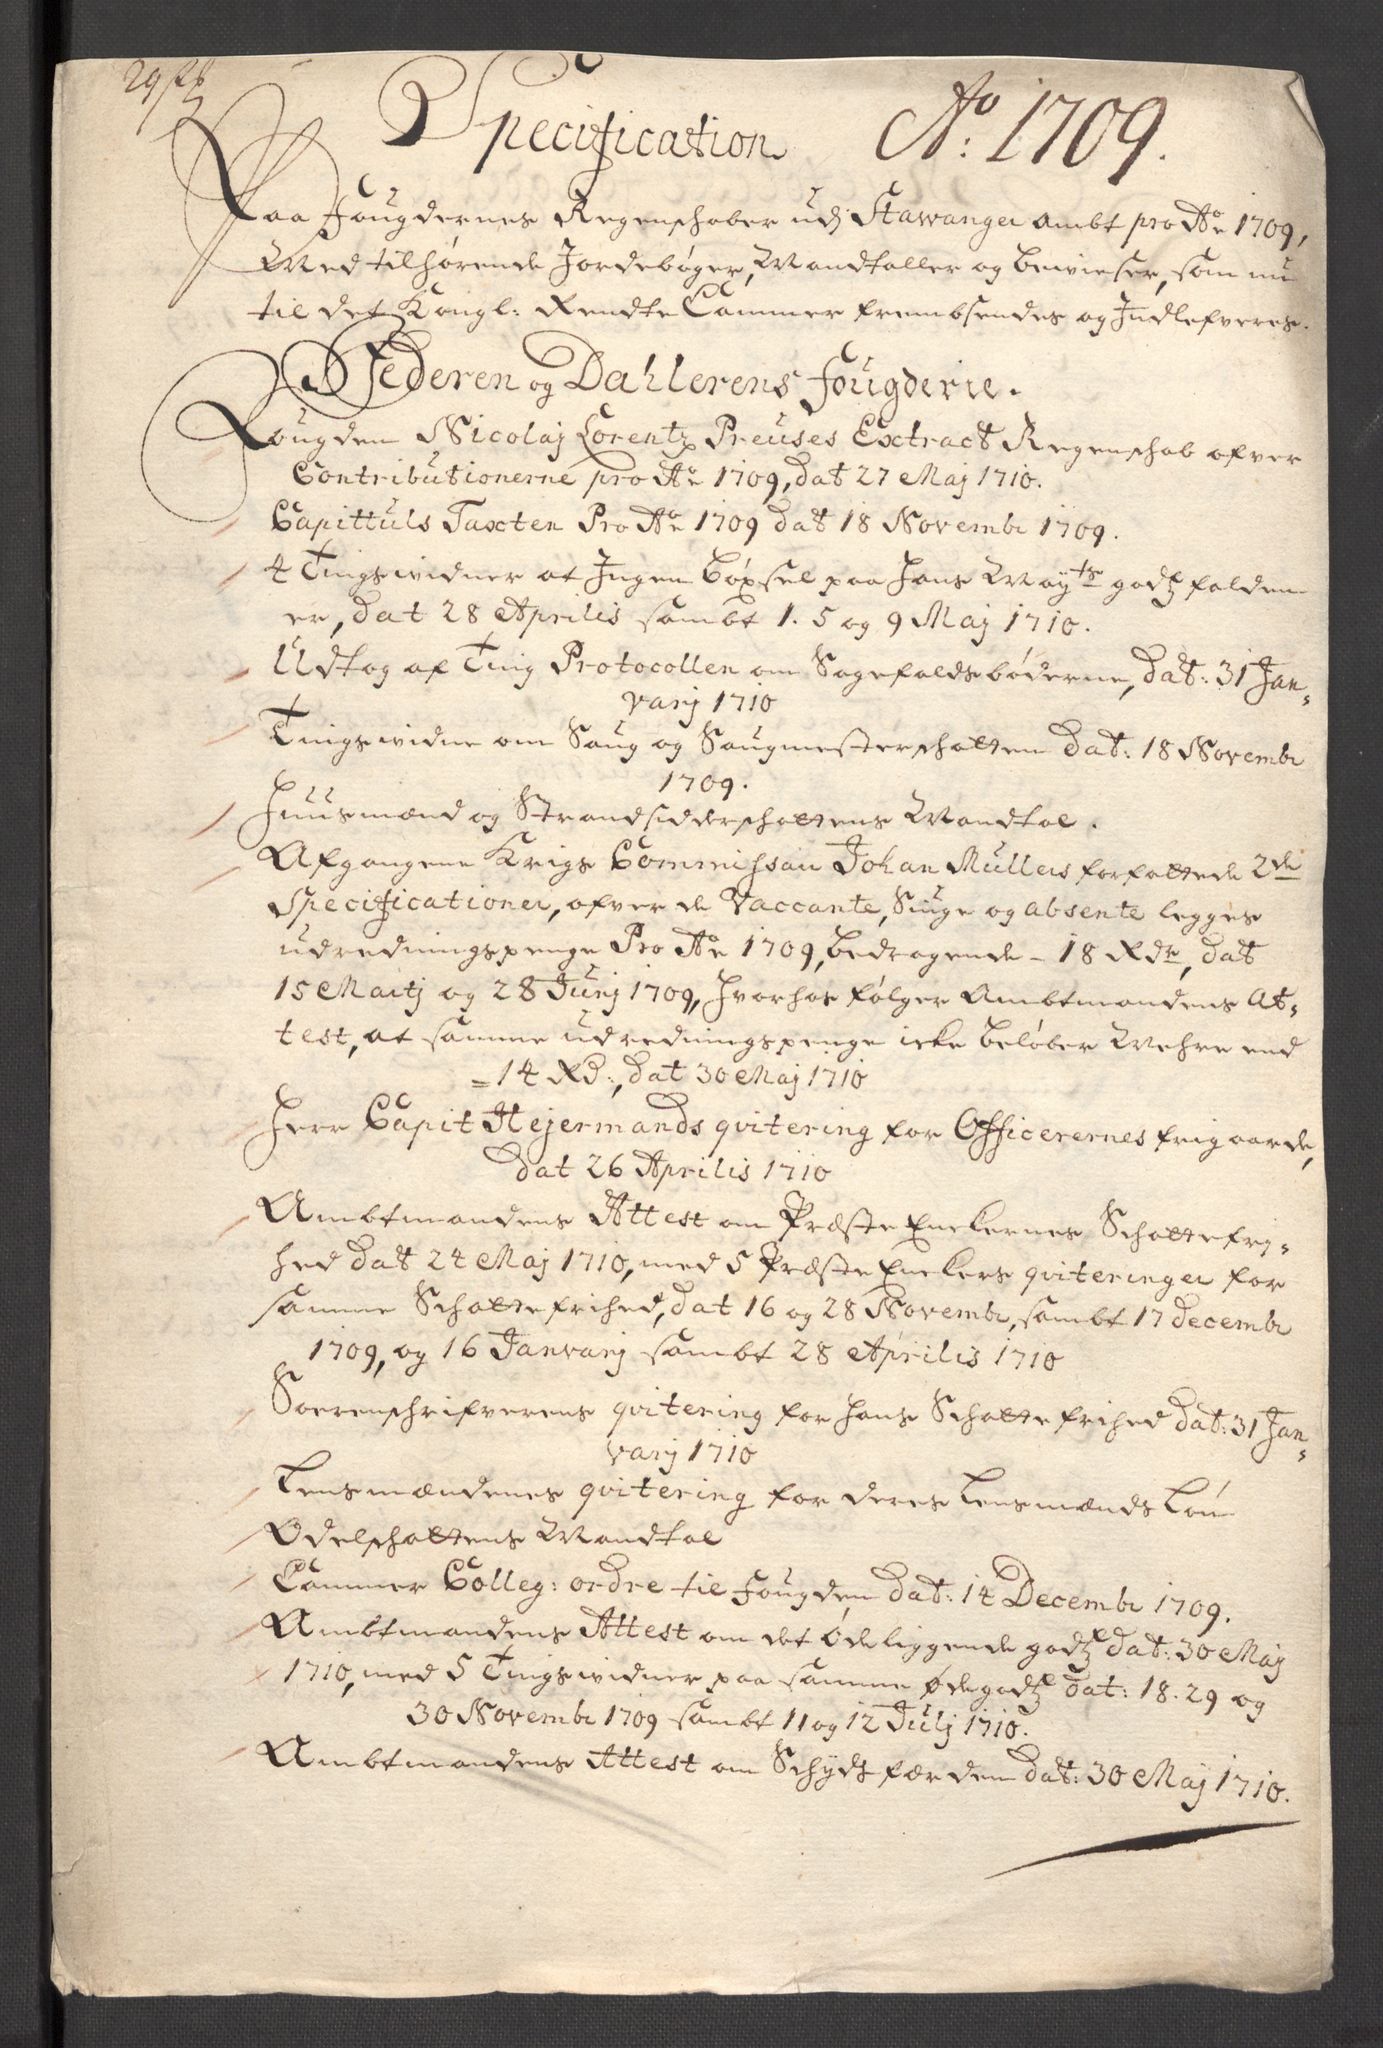 Specification Ao: 1709.
Paa Fougdernes Regenschaber udj Stawanger ambt pro Ao 1709,
Med tilhørende Jordebøger, Mandtaller og bewieser, som nu
til det Kongl: Rendte Cammer frembsendes og Indlefveres.
Jederen og Dahlerens fougderie.
Fougden Nicolaj Lorentz Preuses Extract Regenschab ofver
Contributionerne pro Ao 1709, dat 27 Maj 1710.
Capittuls Taxten Pro Ao 1709 dat 18 Novembr 1709.
4 Tingswidner at Ingen böxsel paa Hans Mayts godtz falden
er, dat 28 Aprilis sambt 1. 5 og 9 Maj 1710.
Udtog af Ting Protocollen om Sagefaldsbøderne, dat: 31 Jan-
varij 1710
Tingswidne om Saug og Saugmesterschatten dat: 18 Novembr
1709.
Huusmænd og Strandsidderschattens Mandtal.
Afgangene Krigs Commissair Johan Mullers forfattede 2de
Specificationer, ofver de Vaccante, Siuge og absente legges
udredningspenge Pro Ao 1709, bedragende - 18 Rdr, dat
15 Martij og 28 Junj 1709, hvorhos følger Ambtmandens At-
test, at samme udredningspenge icke beløber Mehre end
= 14 Rd:, dat 30 Maj 1710
Herr Capit Hejermands qvitering for Officerernes frigaarde,
dat 26 Aprilis 1710
Ambtmandens Attest om Præste Enckernes Schattefrj-
hed dat 24 Maj 1710, med 5 Præste Enckers qviteringer for
samme Schattefrihed, dat 16 og 28 Novembr, sambt 17 decembr
1709, og 16 Janvarij sambt 28 Aprilis 1710
Soerenschrifverens qvitering for hans Schattefrihed dat: 31 Jan-
varij 1710
Lensmændenes qvitering for deres Lensmands Løn
Odelschattens Mandtal
Cammer Colleg: ordre til Fougden dat: 14 Decembr 1709.
Ambtmandens Attest om det Øde liggende godtz dat: 30 Maj
1710, med 5 Tingswidner paa samme Ødegodtz dat: 18. 29 og
30 Novembr 1709 sambt 11 og 12 Julj 1710.
Ambtmandens Attest om Schydsfærden dat: 30 Maj 1710.